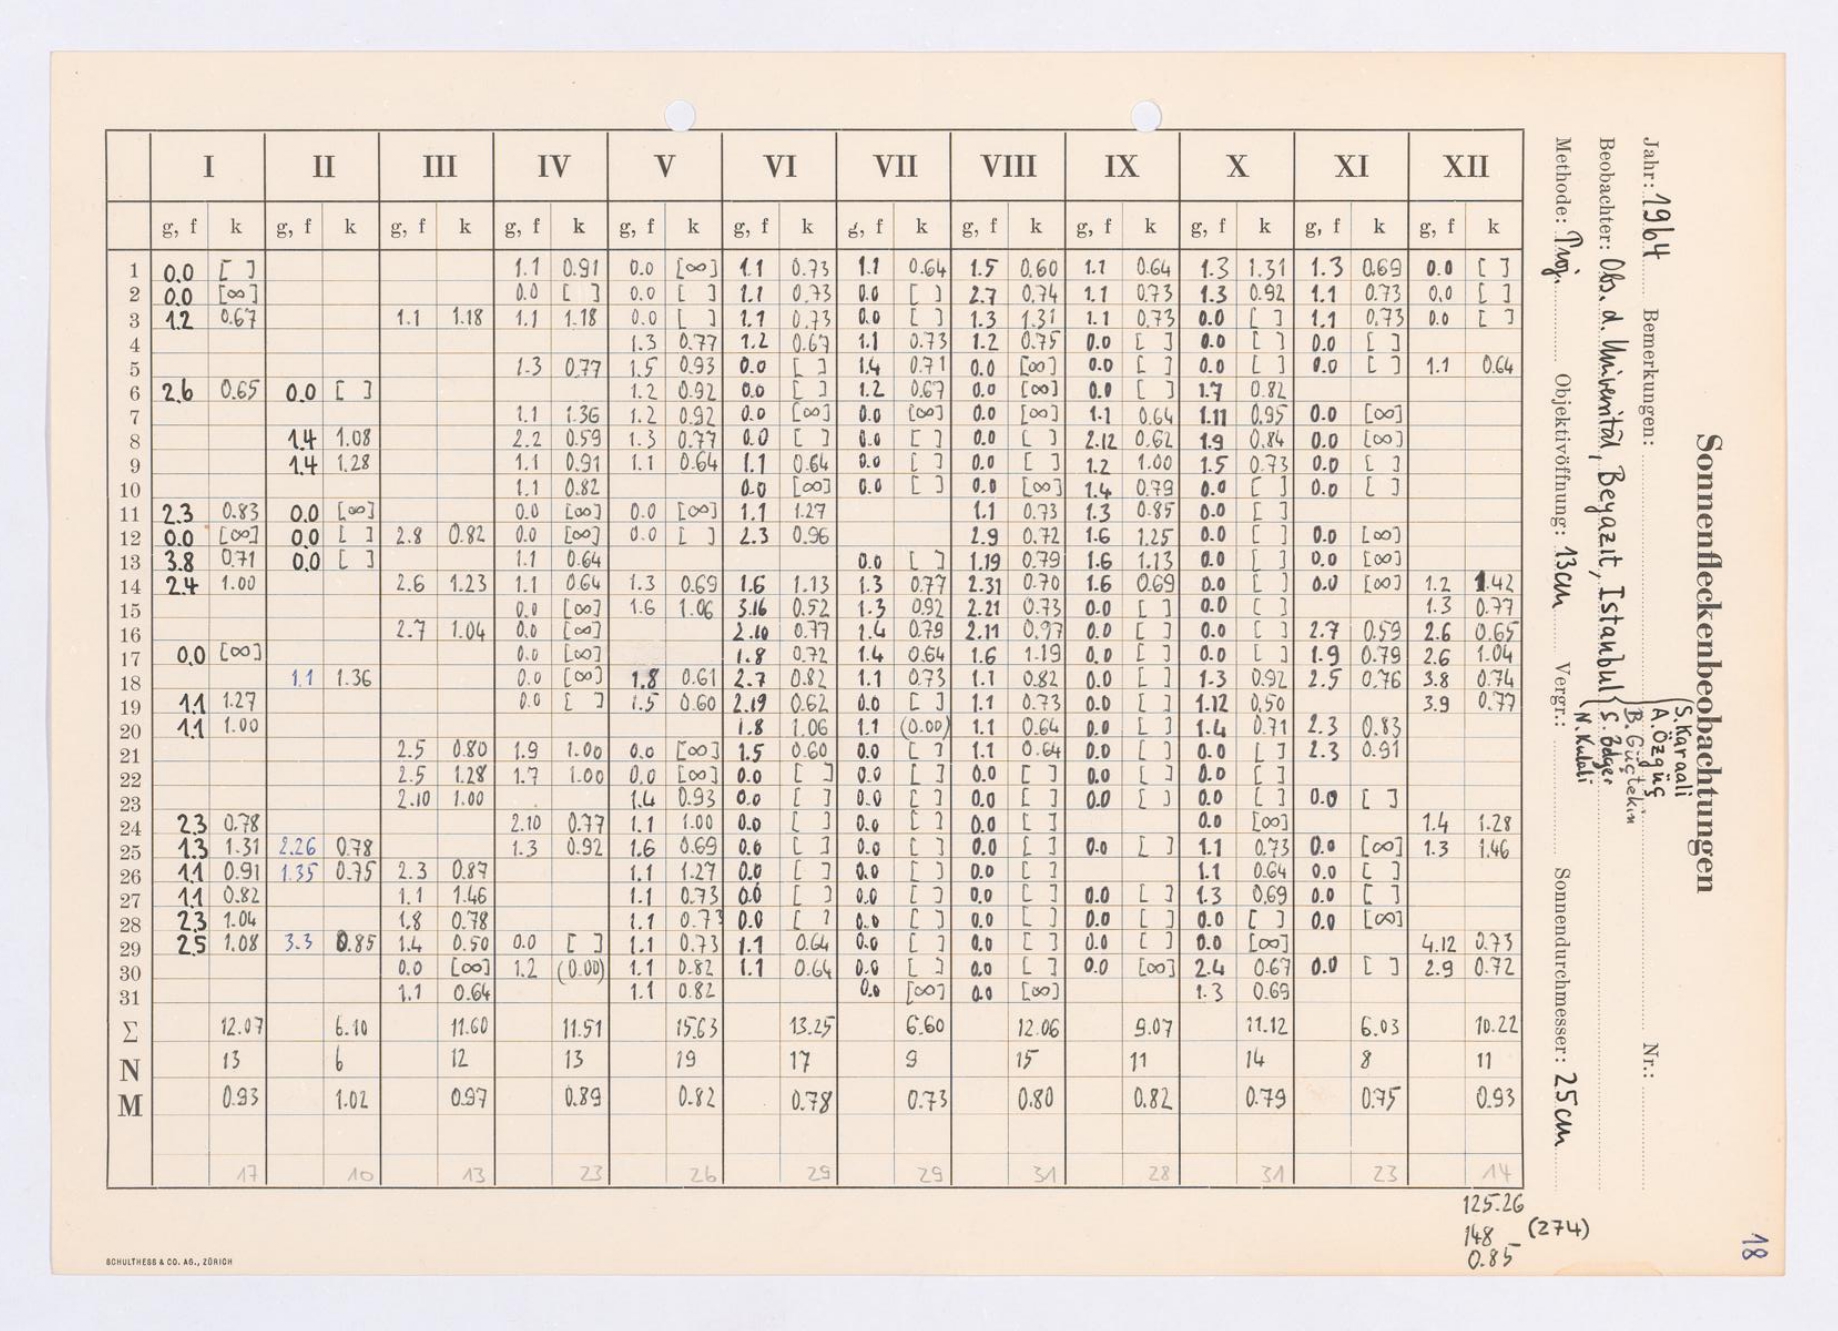 Sonnenfleckenbeobachtungen
Jahr: 1964 Bemerkungen: Nr.:
Beobachter: Obs. d. Universität, Beyazıt, Istanbul
S. Karaali
A. Özgüç
B. Güçtekin
N. Kulali
Methode: Proj. Objektivöffnung: 13cm Vergr.: Sonnendurchmesser: 25cm
I II III IV V VI VII VIII IX X XI XII
g, f k g, f k g, f k g, f k g, f k g, f k g, f k g, f k g, f k g, f k g, f k g, f k
1 0.0 [ ] 1.1 0.91 0.0 [∞] 1.1 0.73 1.1 0.64 1.5 0.60 1.1 0.64 1.3 1.31 1.3 0.69 0.0 [ ]
2 0.0 [∞] 0.0 [ ] 0.0 [ ] 1.1 0.73 0.0 [ ] 2.7 0.74 1.1 0.73 1.3 0.92 1.1 0.73 0.0 [ ]
3 1.2 0.67 1.1 1.18 1.1 1.18 0.0 [ ] 1.1 0.73 0.0 [ ] 1.3 1.31 1.1 0.73 0.0 [ ] 1.1 0.73 0.0 [ ]
4 1.3 0.77 1.2 0.67 1.1 0.73 1.2 0.75 0.0 [ ] 0.0 [ ] 0.0 [ ]
5 1.3 0.77 1.5 0.93 0.0 [ ] 1.4 0.71 0.0 [∞] 0.0 [ ] 0.0 [ ] 0.0 [ ] 1.1 0.64
6 2.6 0.65 0.0 [ ] 1.2 0.92 0.0 [ ] 1.2 0.67 0.0 [∞] 0.0 [ ] 1.7 0.82
7 1.1 1.36 1.2 0.92 0.0 [∞] 0.0 [∞] 0.0 [∞] 1.1 0.64 1.11 0.95 0.0 [∞]
8 1.4 1.08 2.2 0.59 1.3 0.77 0.0 [ ] 0.0 [ ] 0.0 [ ] 2.12 0.62 1.9 0.84 0.0 [∞]
9 1.4 1.28 1.1 0.91 1.1 0.64 1.1 0.64 0.0 [ ] 0.0 [ ] 1.2 1.00 1.5 0.73 0.0 [ ]
10 1.1 0.82 0.0 [∞] 0.0 [ ] 0.0 [∞] 1.4 0.79 0.0 [ ] 0.0 [ ]
11 2.3 0.83 0.0 [∞] 0.0 [∞] 0.0 [∞] 1.1 1.27 1.1 0.73 1.3 0.85 0.0 [ ]
12 0.0 [∞] 0.0 [ ] 2.8 0.82 0.0 [∞] 0.0 [ ] 2.3 0.96 2.9 0.72 1.6 1.25 0.0 [ ] 0.0 [∞]
13 3.8 0.71 0.0 [ ] 1.1 0.64 0.0 [ ] 1.19 0.79 1.6 1.13 0.0 [ ] 0.0 [∞]
14 2.4 1.00 2.6 1.23 1.1 0.64 1.3 0.69 1.6 1.13 1.3 0.77 2.31 0.70 1.6 0.69 0.0 [ ] 0.0 [∞] 1.2 1.42
15 0.0 [∞] 1.6 1.06 3.16 0.52 1.3 0.92 2.21 0.73 0.0 [ ] 0.0 [ ] 1.3 0.77
16 2.7 1.04 0.0 [∞] 2.10 0.77 1.4 0.79 2.11 0.97 0.0 [ ] 0.0 [ ] 2.7 0.59 2.6 0.65
17 0.0 [∞] 0.0 [∞] 1.8 0.72 1.4 0.64 1.6 1.19 0.0 [ ] 0.0 [ ] 1.9 0.79 2.6 1.04
18 1.1 1.36 0.0 [∞] 1.8 0.61 2.7 0.82 1.1 0.73 1.1 0.82 0.0 [ ] 1.3 0.92 2.5 0.76 3.8 0.74
19 1.1 1.27 0.0 [ ] 1.5 0.60 2.19 0.62 0.0 [ ] 1.1 0.73 0.0 [ ] 1.12 0.50 3.9 0.77
20 1.1 1.00 1.8 1.06 1.1 (0.00) 1.1 0.64 0.0 [ ] 1.4 0.71 2.3 0.83
21 2.5 0.80 1.9 1.00 0.0 [∞] 1.5 0.60 0.0 [ ] 1.1 0.64 0.0 [ ] 0.0 [ ] 2.3 0.91
22 2.5 1.28 1.7 1.00 0.0 [∞] 0.0 [ ] 0.0 [ ] 0.0 [ ] 0.0 [ ] 0.0 [ ]
23 2.10 1.00 1.4 0.93 0.0 [ ] 0.0 [ ] 0.0 [ ] 0.0 [ ] 0.0 [ ] 0.0 [ ]
24 2.3 0.78 2.10 0.77 1.1 1.00 0.0 [ ] 0.0 [ ] 0.0 [ ] 0.0 [∞] 1.4 1.28
25 1.3 1.31 2.26 0.78 1.3 0.92 1.6 0.69 0.0 [ ] 0.0 [ ] 0.0 [ ] 0.0 [ ] 1.1 0.73 0.0 [∞] 1.3 1.46
26 1.1 0.91 1.35 0.75 2.3 0.87 1.1 1.27 0.0 [ ] 0.0 [ ] 0.0 [ ] 1.1 0.64 0.0 [ ]
27 1.1 0.82 1.1 1.46 1.1 0.73 0.0 [ ] 0.0 [ ] 0.0 [ ] 0.0 [ ] 1.3 0.69 0.0 [ ]
28 2.3 1.04 1.8 0.78 1.1 0.73 0.0 [ ] 0.0 [ ] 0.0 [ ] 0.0 [ ] 0.0 [ ] 0.0 [∞]
29 2.5 1.08 3.3 0.85 1.4 0.50 0.0 [ ] 1.1 0.73 1.1 0.64 0.0 [ ] 0.0 [ ] 0.0 [ ] 0.0 [∞] 4.12 0.73
30 0.0 [∞] 1.2 (0.00) 1.1 0.82 1.1 0.64 0.0 [ ] 0.0 [ ] 0.0 [∞] 2.4 0.67 0.0 [ ] 2.9 0.72
31 1.1 0.64 1.1 0.82 0.0 [∞] 0.0 [∞] 1.3 0.69
Σ 12.07 6.10 11.60 11.51 15.63 13.25 6.60 12.06 9.07 11.12 6.03 10.22
N 13 6 12 13 19 17 9 15 11 14 8 11
M 0.93 1.02 0.97 0.89 0.82 0.78 0.73 0.80 0.82 0.79 0.75 0.93
17 10 13 23 26 29 29 31 28 31 23 14
125.26
148 (274)
0.85
SCHULTHESS & CO. AG., ZÜRICH
18